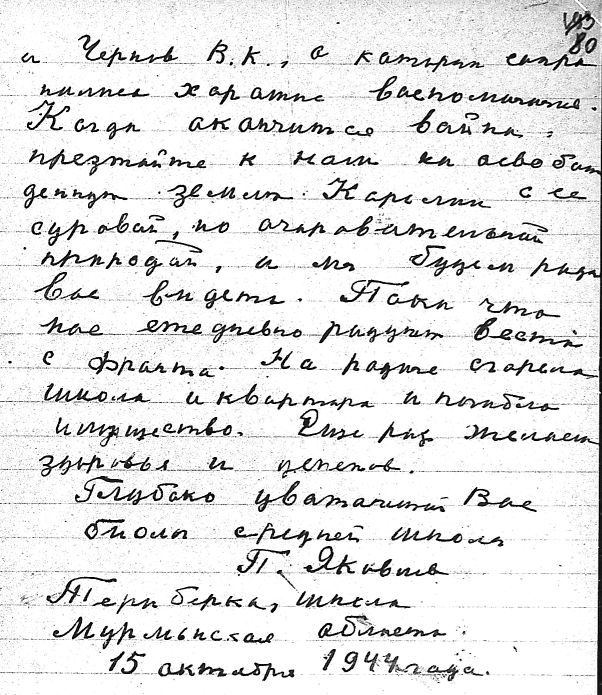 193
80
и Чернов В.К., о котором сохра
нились хорошие воспоминания.
Когда окончится война,
приезжайте к нам на освобож
денную землю Карелии с ее
суровой, но очаровательной
природой, а мы будем рады
Вас видеть. Пока что
нас ежедневно радуют вести
с фронта. На родине сгорела
школа и квартира и погибло
имущество. Еще раз желаем
здоровья и успехов.
Глубоко уважающий Вас
биолог средней школы
П. Яковлев
Териберка, школа
Мурманская область.
15 октября 1944 года.